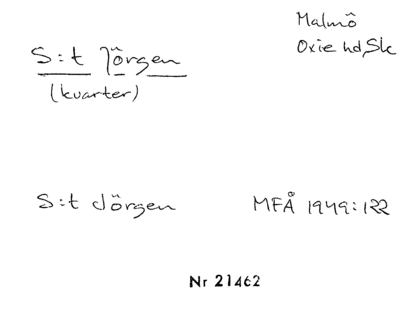 Malmö
Oxie hd, Sk
S:t Jörgen
(kvarter)
S:t Jörgen MFÅ 1949:122
Nr 21462